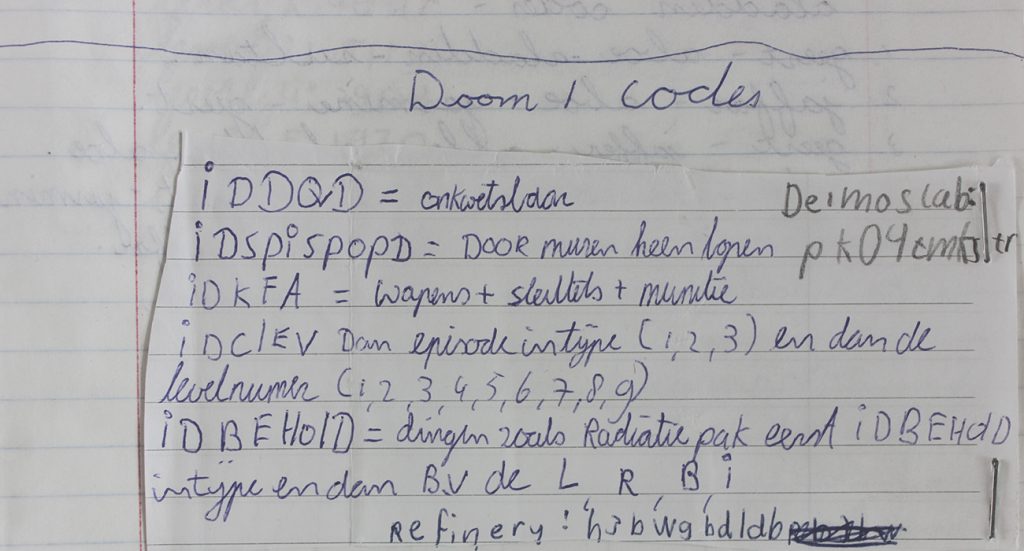 Doom 1 codes
iDDQD = onkwetsbaar
Deimoslab:
iDSpiSpopD = DOOR muren heen lopen
pk04cmks
tr
iDKFA = wapens + sleutels + munitie
iDClEV Dan episode intype (1,2,3) en dan de
levelnumer (1,2,3,4,5,6,7,8,9)
iDBEHOlD = dingen zoals Radiatie pak eerst iDBEHOlD
intype en dan B.V de L R B i
Refinery: h3bwgbdldb